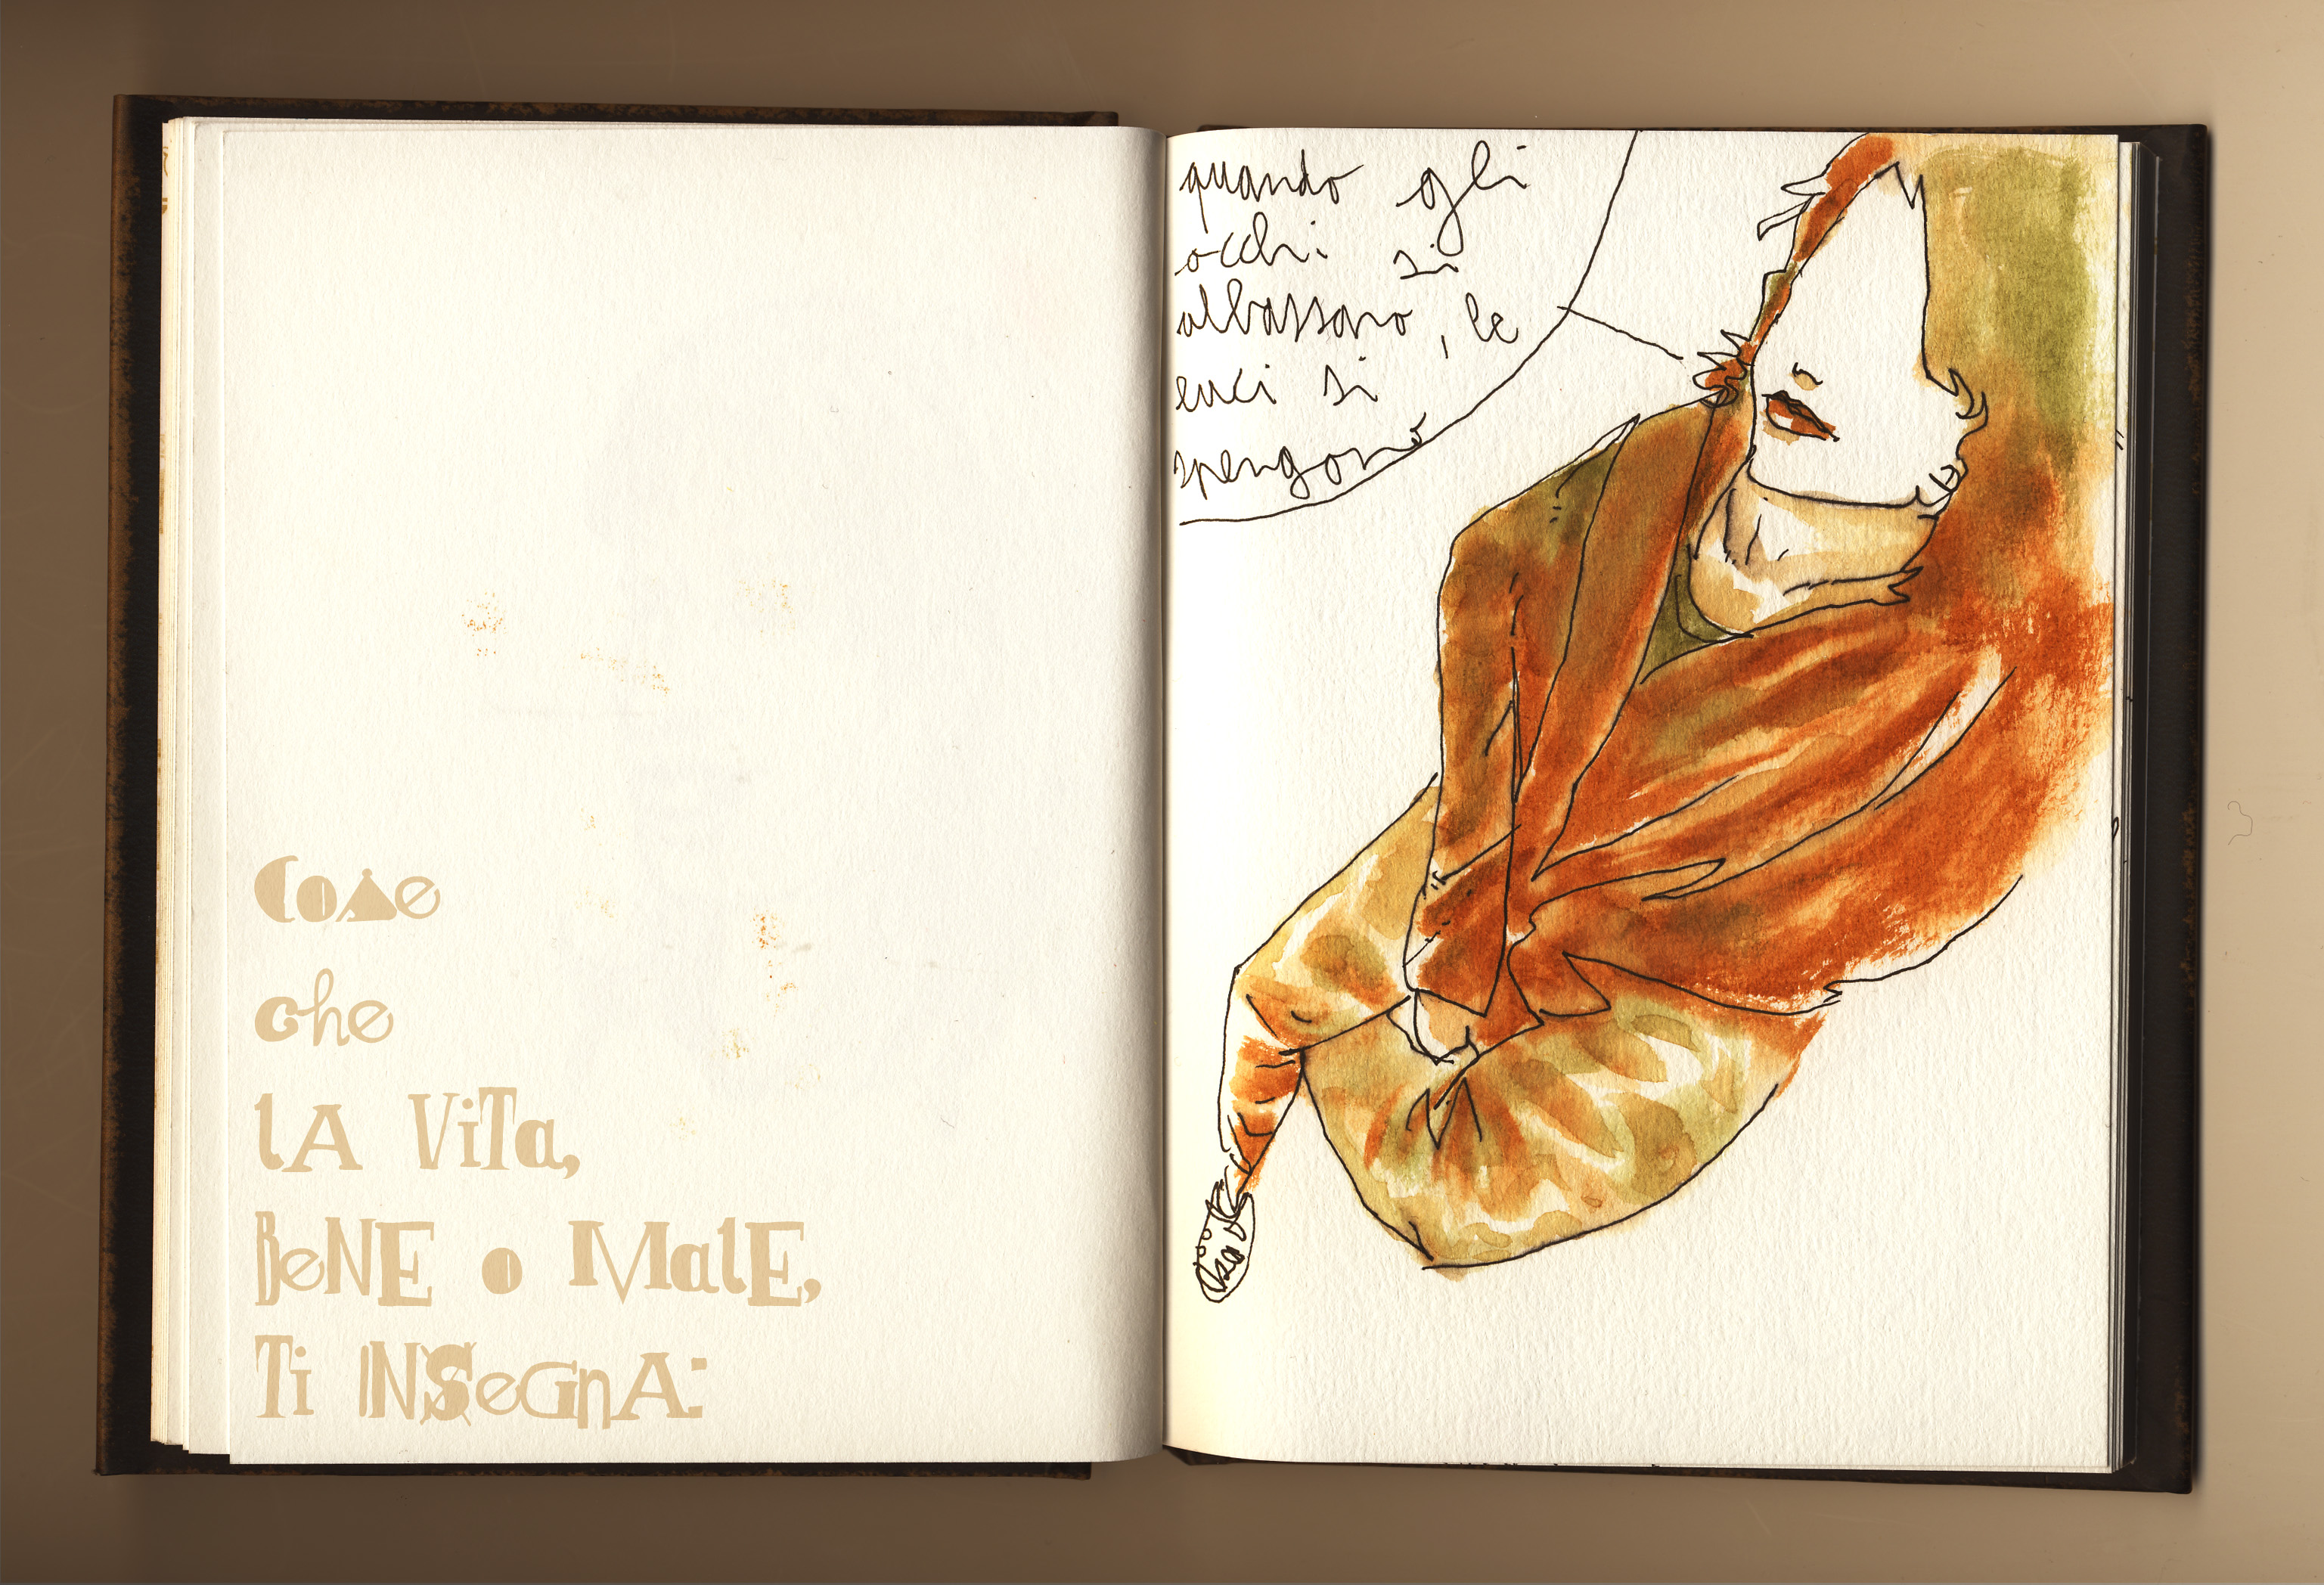 Cose
che
lA ViTa,
BeNE o MalE,
Ti INSeGnA:
quando gli
occhi si
abbassano, le
luci si
spengono